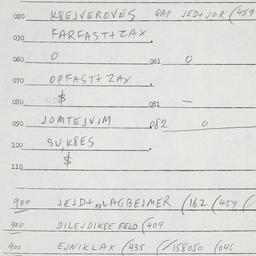 020 K8EJVEROVES QAP JEDTJOR (459
030 FARFAST+ZAX.
060 O 061 O
070 OPFAST+ZAX.
080 $ 081 –
090 JOMTEJVIM 082 O
100 SUK8ES
$
110
900 (162 (459 (
900 DILEJDIKEE FELD (409
900 EJNIKLAX (435 (/158050 (04C